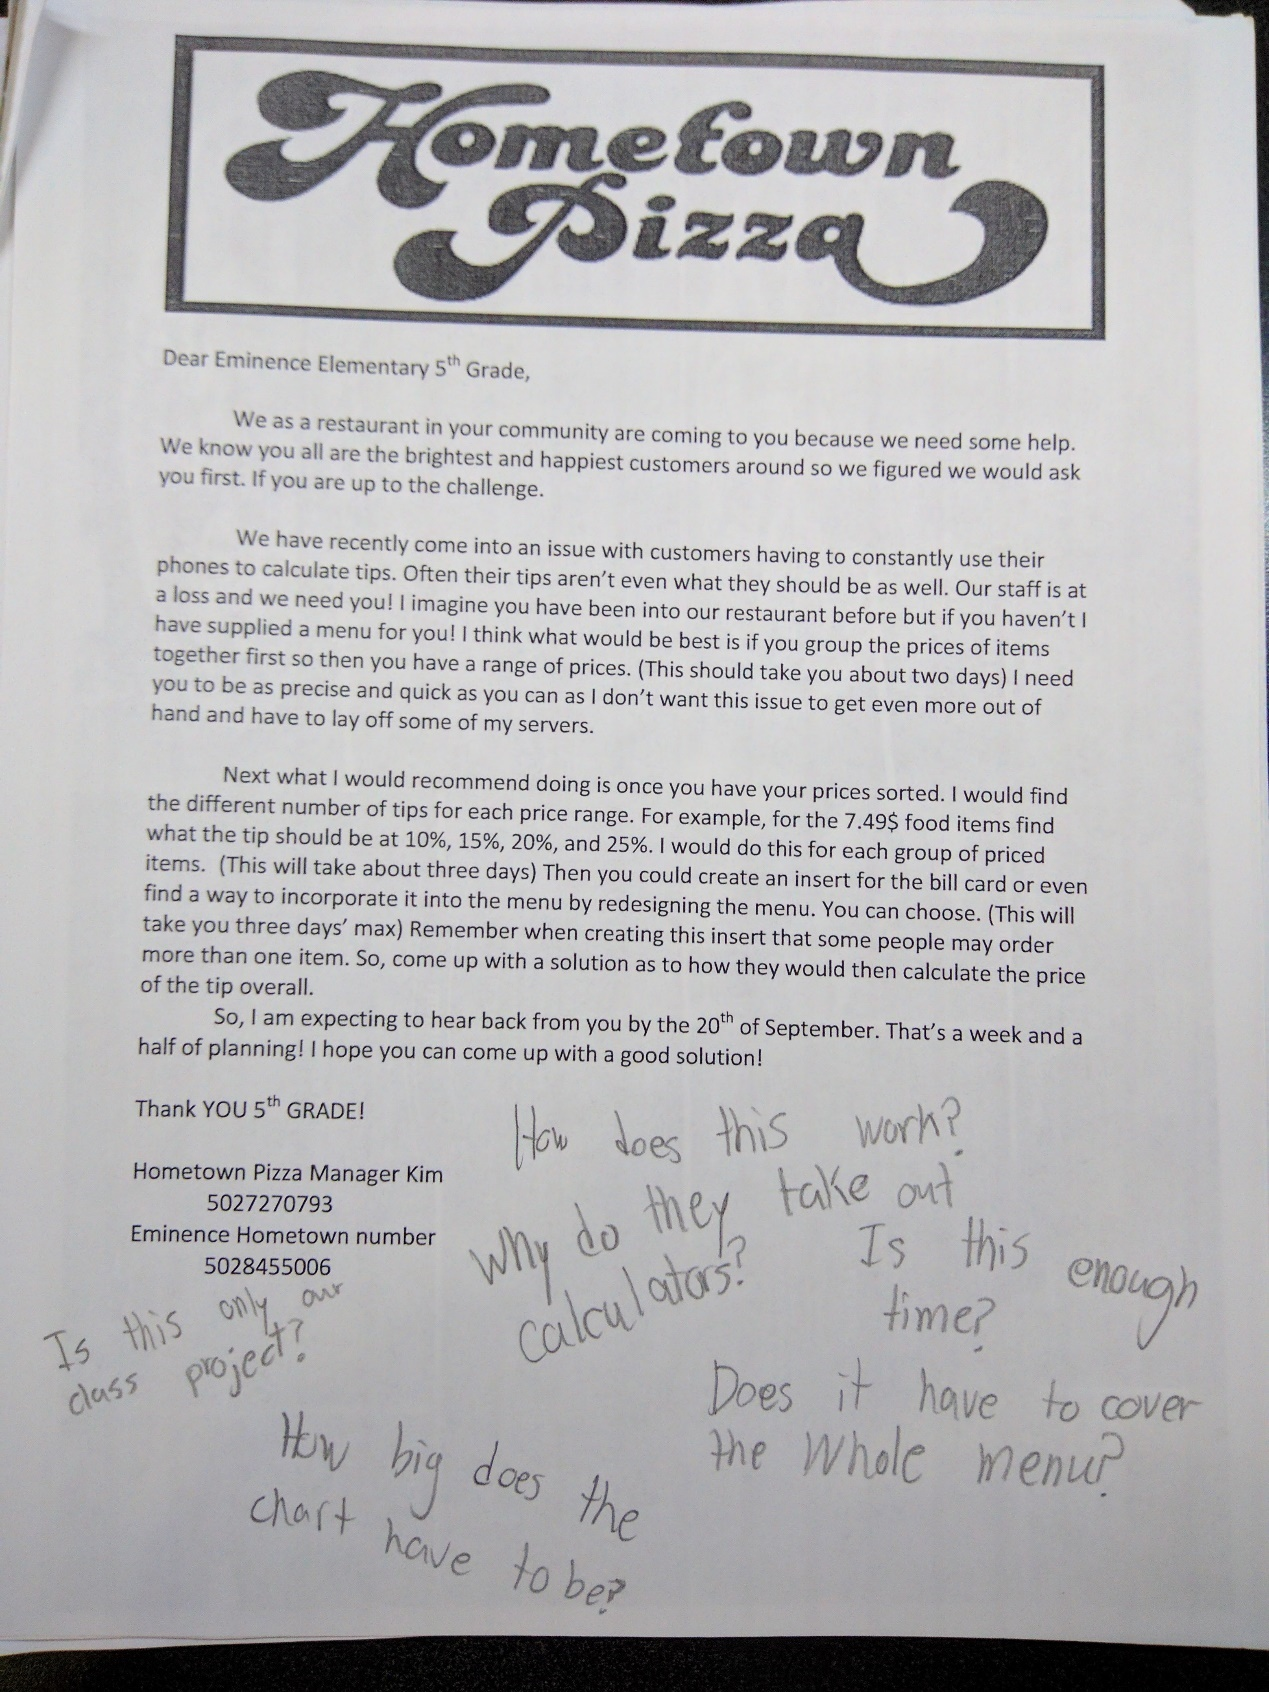 Hometown
Pizza
Dear Eminence Elementary 5th Grade,
We as a restaurant in your community are coming to you because we need some help.
We know you all are the brightest and happiest customers around so we figured we would ask
you first. If you are up to the challenge.
We have recently come into an issue with customers having to constantly use their
phones to calculate tips. Often their tips aren't even what they should be as well. Our staff is at
a loss and we need you! I imagine you have been into our restaurant before but if you haven't I
have supplied a menu for you! I think what would be best is if you group the prices of items
together first so then you have a range of prices. (This should take you about two days) I need
you to be as precise and quick as you can as I don't want this issue to get even more out of
hand and have to lay off some of my servers.
Next what I would recommend doing is once you have your prices sorted. I would find
the different number of tips for each price range. For example, for the 7.49$ food items find
what the tip should be at 10%, 15%, 20%, and 25%. I would do this for each group of priced
items.  (This will take about three days) Then you could create an insert for the bill card or even
find a way to incorporate it into the menu by redesigning the menu. You can choose. (This will
take you three days' max) Remember when creating this insert that some people may order
more than one item. So, come up with a solution as to how they would then calculate the price
of the tip overall.
So, I am expecting to hear back from you by the 20th of September. That's a week and a
half of planning! I hope you can come up with a good solution!
Thank YOU 5th GRADE!
Hometown Pizza Manager Kim
5027270793
Eminence Hometown number
5028455006
How does this work?
Why do they take out
calculators?
Is this enough
time?
Is this only our
class project?
Does it have to cover
the whole menu?
How big does the
chart have to be?